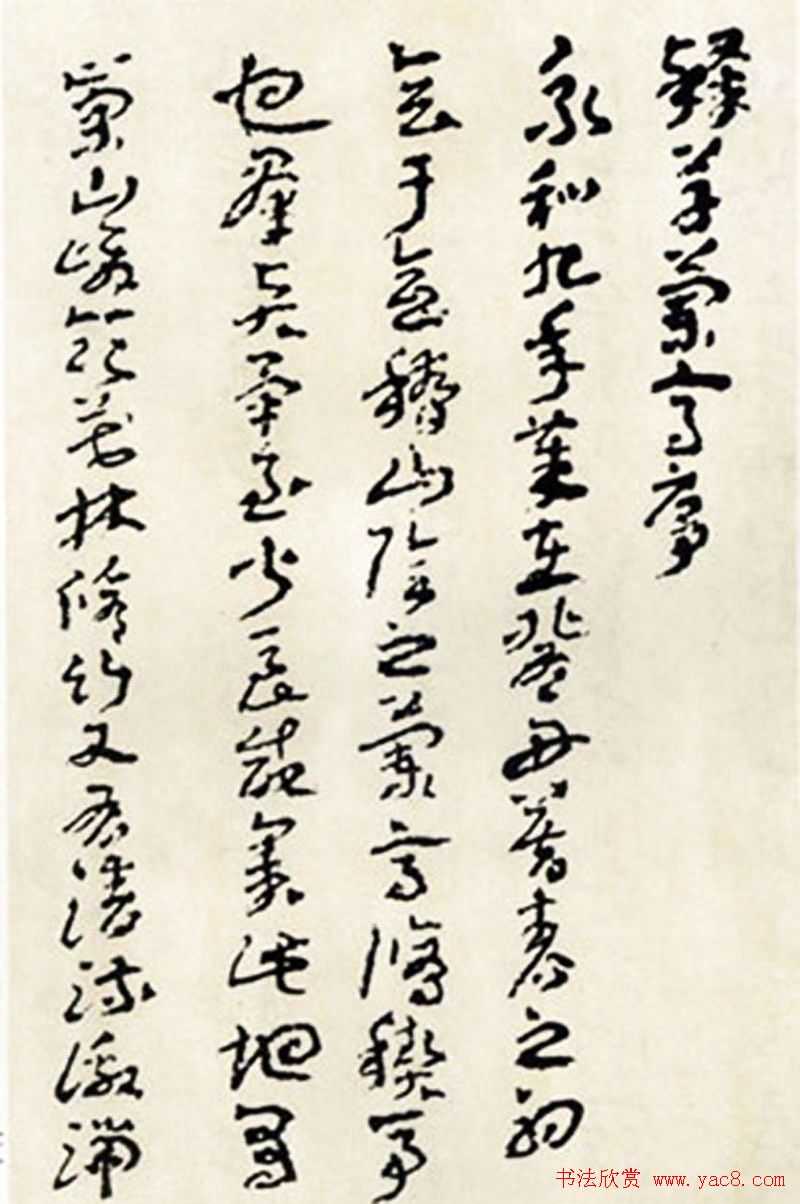 隸草蘭亭序
永和九年歲在癸丑暮春之初
會于會稽山陰之蘭亭脩稧事
也羣賢畢至少長咸集此地有
崇山峻領茂林脩竹又有清流激湍
书法欣赏 www.yac8.com